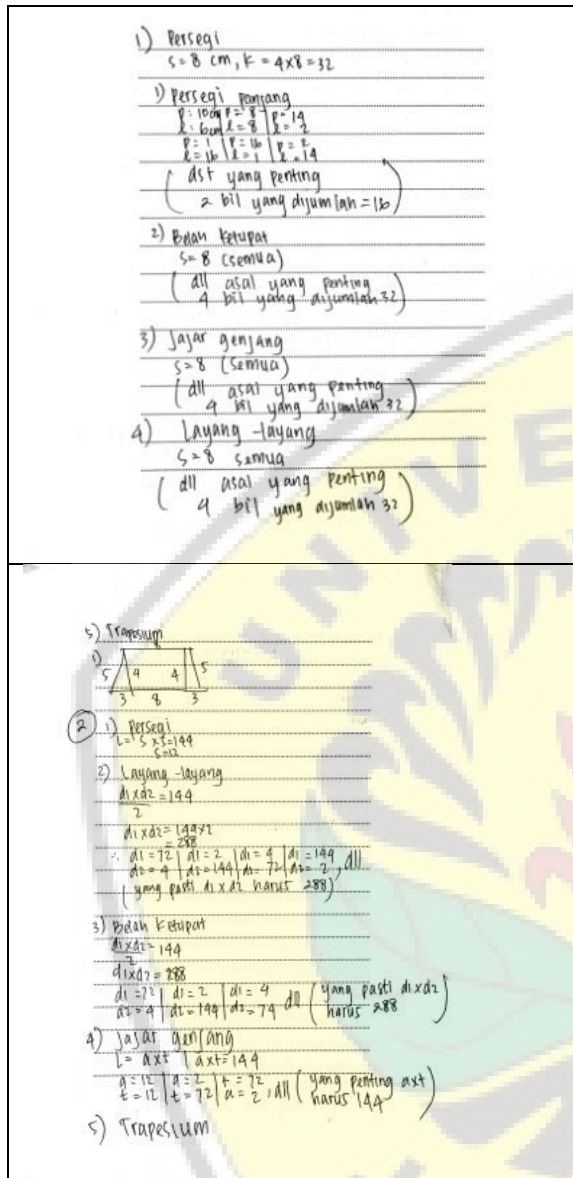 1) Persegi
s = 8 cm, k = 4x8 = 32
1) Persegi panjang
p: 10cm | p = 8 | p = 14
l: 6cm | l = 8 | l = 2
p = 1 | p = 16 | p = 2
l = 16 | l = 1 | l = 14
( dst yang penting
2 bil yang dijumlah = 16 )
2) Belah ketupat
s = 8 (semua)
( dll asal yang penting
4 bil yang dijumlah 32 )
3) Jajar genjang
s = 8 (semua)
( dll asal yang penting
4 bil yang dijumlah 32 )
4) Layang-layang
s = 8 semua
( dll asal yang penting
4 bil yang dijumlah 32 )
UNIVE
5) Trapesium
1)
8
5 4 4 5
3 8 3
2 1) Persegi
L = s x s = 144
s = 12
2) Layang-layang
d1 x d2 = 144
2
d1 x d2 = 144 x 2
= 288
∴ d1 = 72 | d1 = 2 | d1 = 4 | d1 = 144
d2 = 4 | d2 = 144 | d2 = 72 | d2 = 2, dll
( yang pasti d1 x d2 harus 288 )
3) Belah ketupat
d1 x d2 = 144
2
d1 x d2 = 288
d1 = 72 | d1 = 2 | d1 = 4 dll ( yang pasti d1 x d2
d2 = 4 | d2 = 144 | d2 = 74 harus 288 )
4) Jajar genjang
L = a x t | a x t = 144
a = 12 | a = 2 | t = 72 ( yang penting a x t
t = 12 | t = 72 | a = 2, dll harus 144 )
5) Trapesium